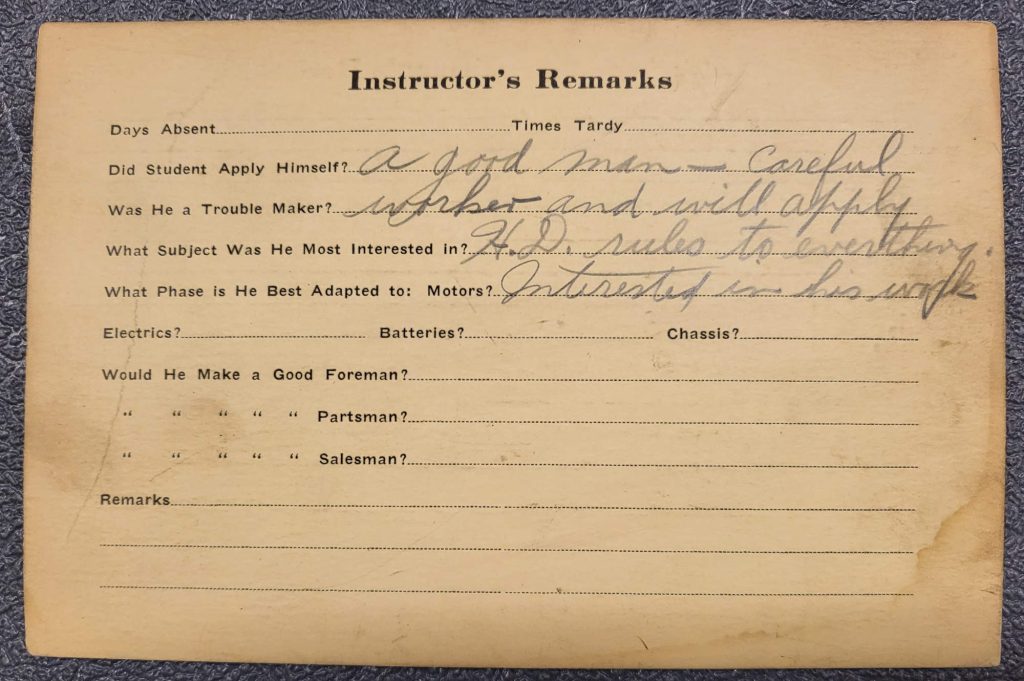 Instructor's Remarks
Days Absent Times Tardy
Did Student Apply Himself? A good man — careful
Was He a Trouble Maker? worker and will apply
What Subject Was He Most Interested in? H.D. rules to everthing.
What Phase is He Best Adapted to: Motors? Interested in his work
Electrics? Batteries? Chassis?
Would He Make a Good Foreman?
" " " " " Partsman?
" " " " " Salesman?
Remarks